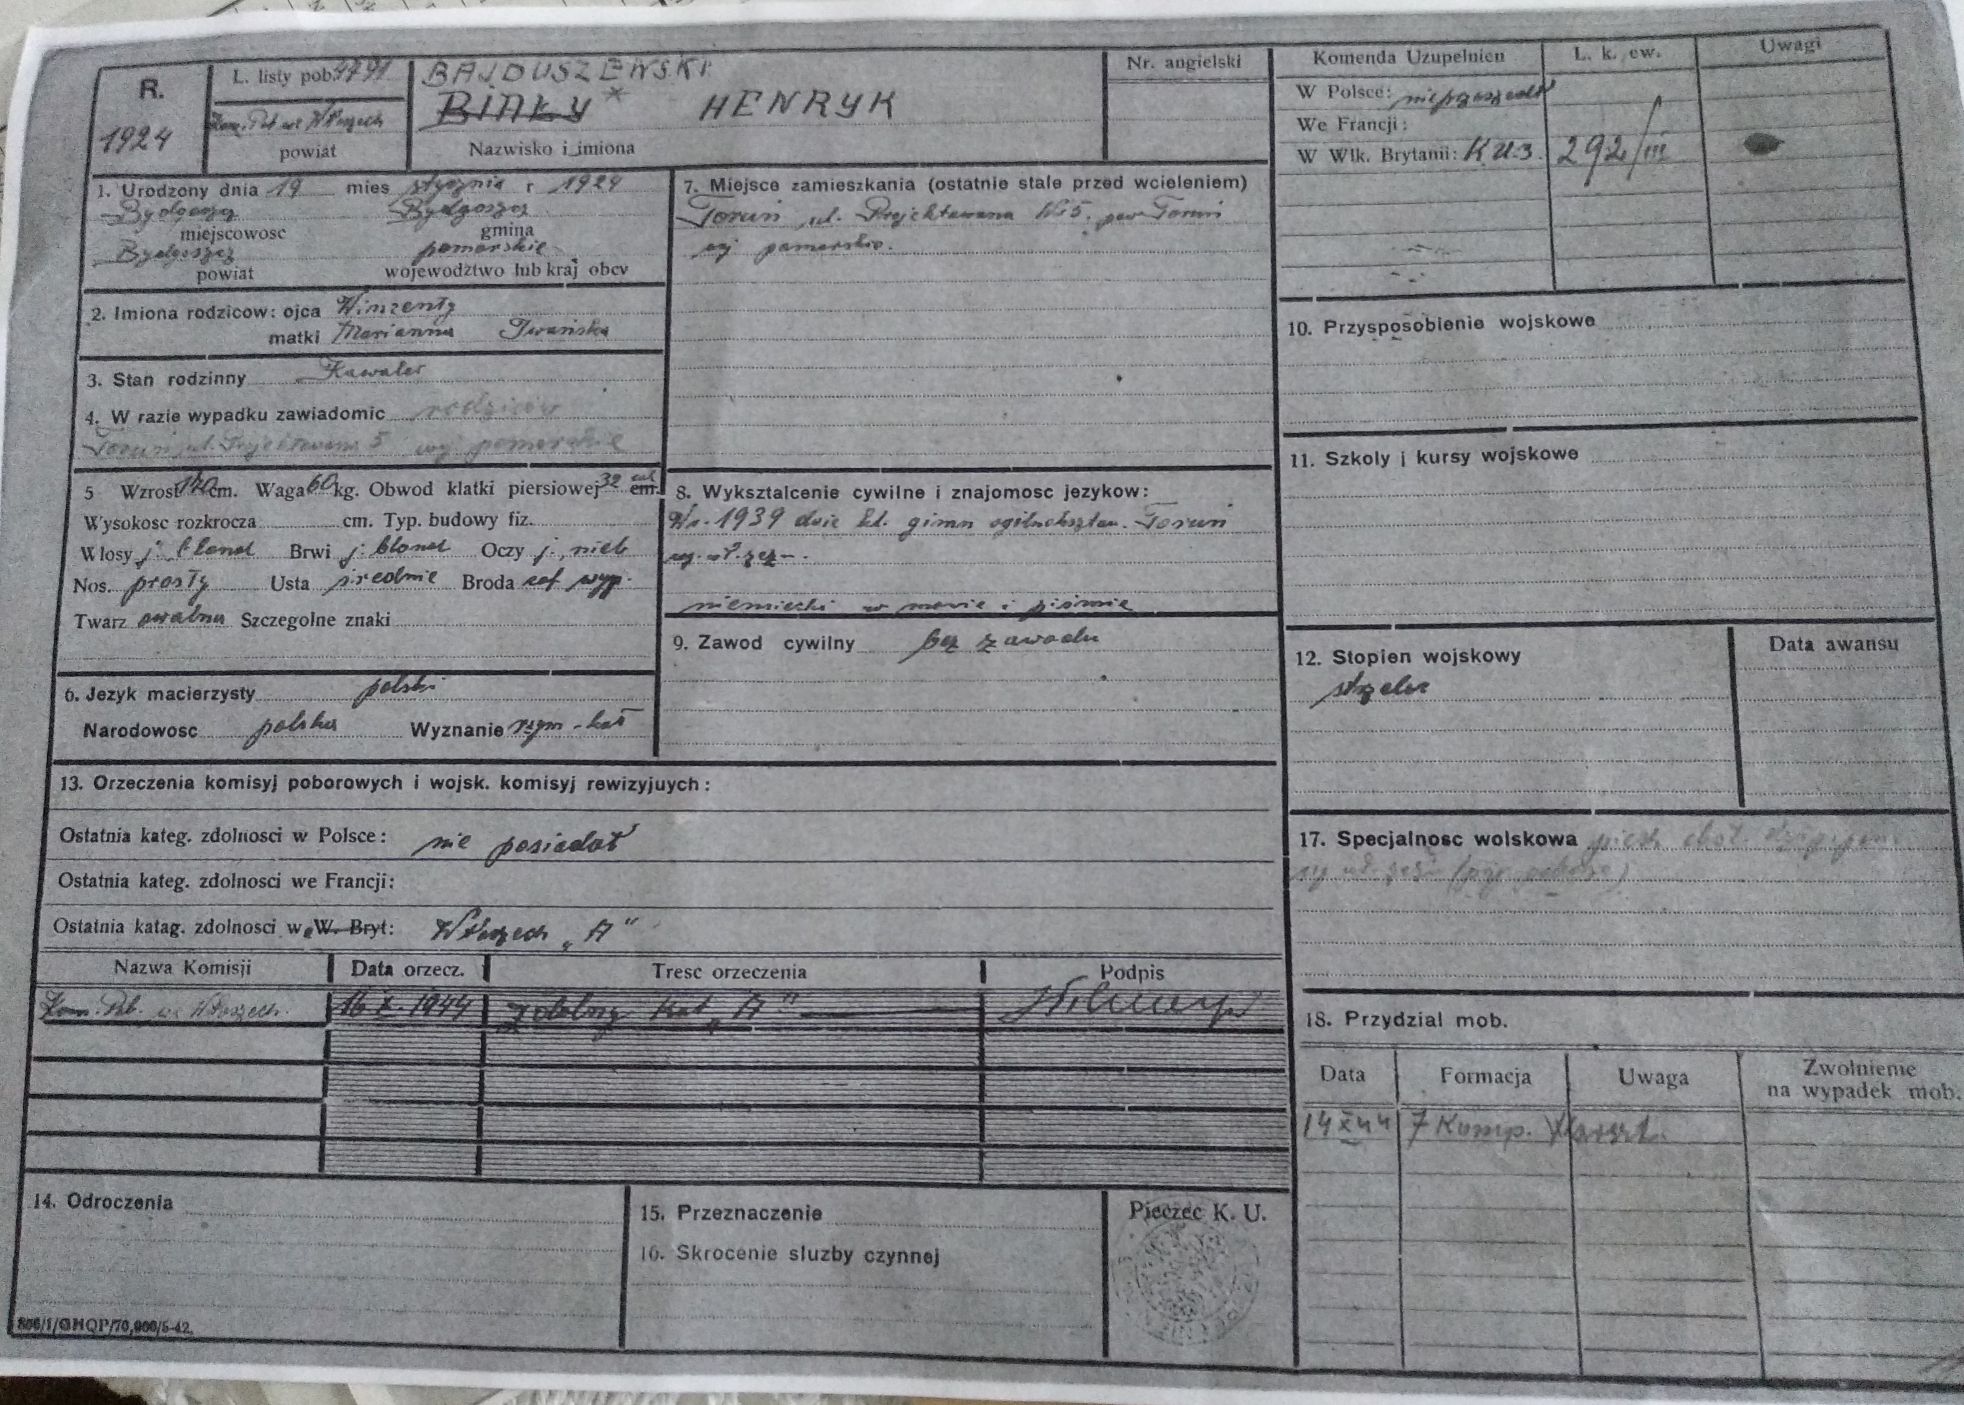 R.
1924
L. listy pob. 4791
Kom. Pob. we Włoszech
powiat
BAJDUSZEWSKI
BIAŁY* HENRYK
Nazwisko i imiona
Nr. angielski
1. Urodzony dnia 19 mies stycznia r 1924
Bydgoszcz Bydgoszcz
miejscowosc gmina
Bydgoszcz pomorskie
powiat wojewodztwo lub kraj obcy
2. Imiona rodzicow: ojca Wincenty
matki Marianna Iwańska
3. Stan rodzinny Kawaler
4. W razie wypadku zawiadomic rodziców
Toruń, ul. Projektowana 5 woj pomorskie
5 Wzrost 170 cm. Waga 60 kg. Obwod klatki piersiowej 32 cal cm.
Wysokosc rozkrocza cm. Typ. budowy fiz.
Wlosy j. blond Brwi j. blond Oczy j. nieb
Nos. prosty Usta średnie Broda
Twarz owalna Szczegolne znaki
6. Jezyk macierzysty polski
Narodowosc polska Wyznanie rzym-kat
7. Miejsce zamieszkania (ostatnie stale przed wcieleniem)
Toruń, ul. Projektowana Nr 5. pow Toruń
woj pomorskie.
8. Wyksztalcenie cywilne i znajomosc jezykow:
W r. 1939 dwie kl. gimn ogólnokształ. Toruń
niemiecki w mowie i piśmie
9. Zawod cywilny bez zawodu
Komenda Uzupelnien L. k. ew. Uwagi
W Polsce:
We Francji:
W Wlk. Brytanii: K.U.3. 292/III
10. Przysposobienie wojskowe
11. Szkoly i kursy wojskowe
12. Stopien wojskowy Data awansu
strzelec
13. Orzeczenia komisyj poborowych i wojsk. komisyj rewizyjuych:
Ostatnia kateg. zdolnosci w Polsce: nie posiadał
Ostatnia kateg. zdolnosci we Francji:
Ostatnia katag. zdolnosci we W. Bryt: Włoszech „A"
Nazwa Komisji Data orzecz. Tresc orzeczenia Podpis
Kom. Pob. we Włoszech. 16 X. 1944 Zdolny kat „A"
17. Specjalnosc wolskowa
18. Przydzial mob.
Data Formacja Uwaga Zwolnienie
na wypadek mob.
14 X 44 7 Komp. Warszt.
14. Odroczenia
15. Przeznaczenie
16. Skrocenie sluzby czynnej
Pieczec K. U.
806/1/GHQP/70,000/5-42.